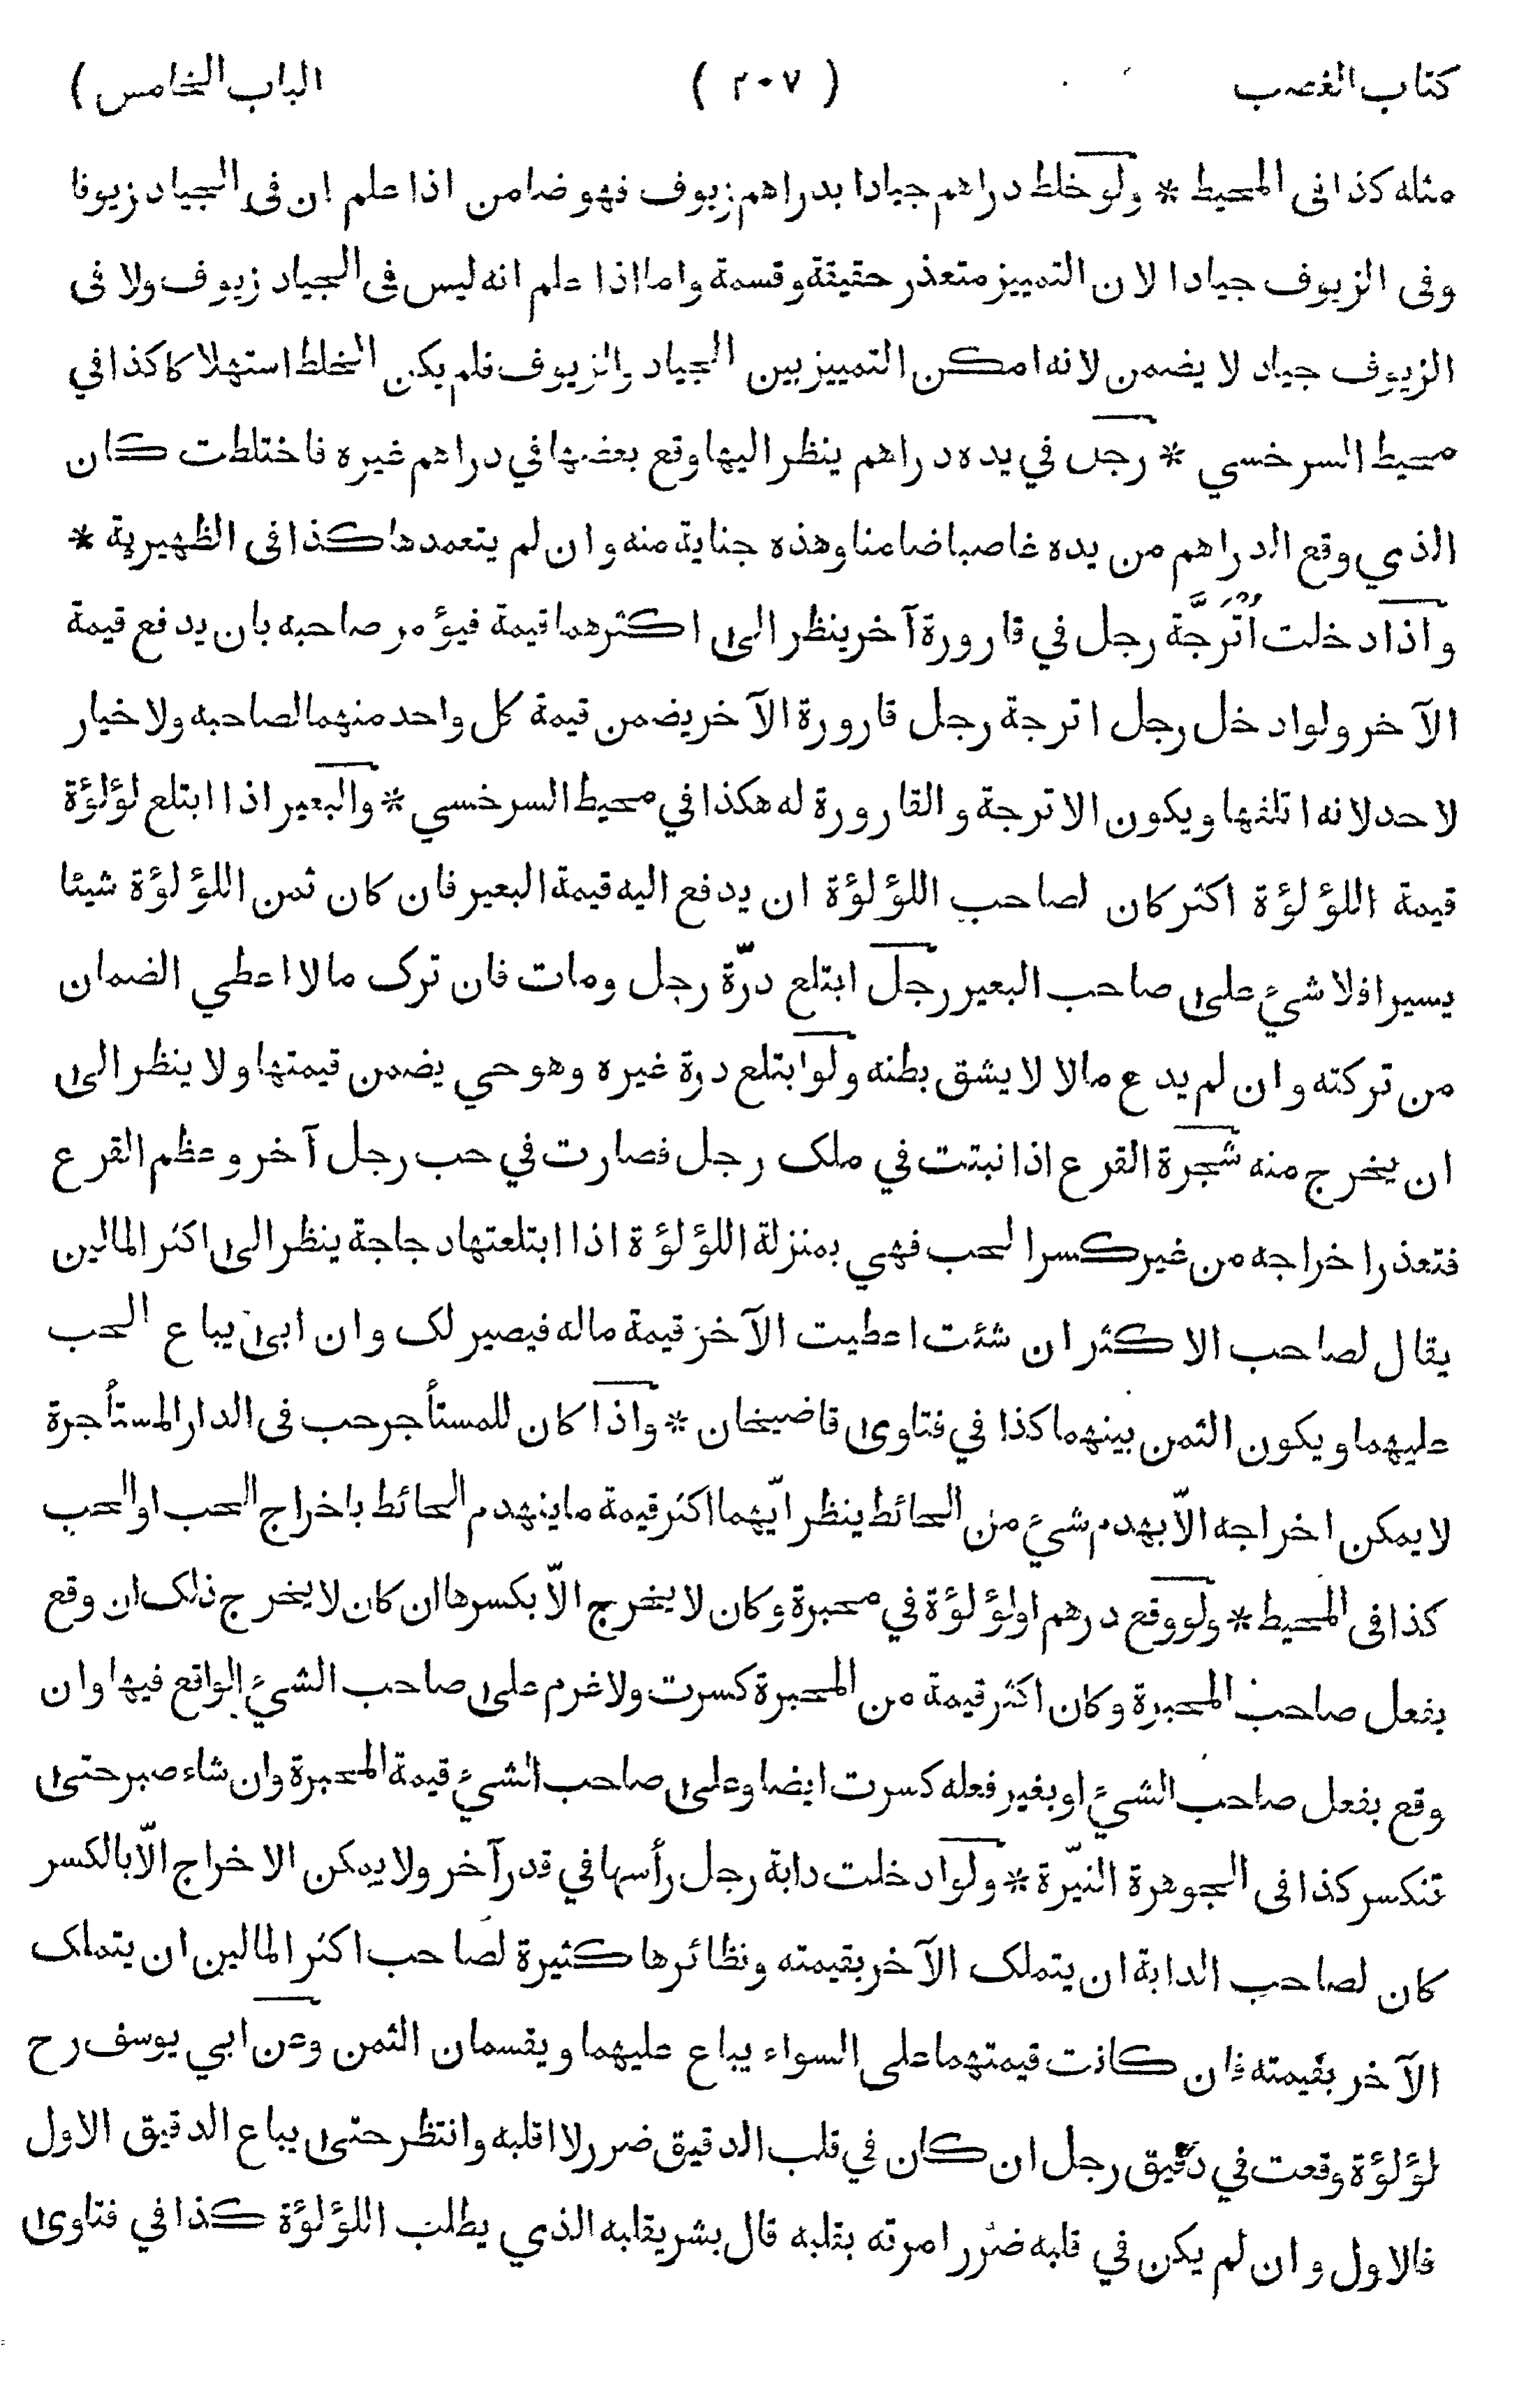 كتاب الغصب ( ٢٠٧ ) الباب الخامس )
مثله كذا فى المحيط * ولو خلط دراهم جيادا بدراهم زيوف فهو ضامن اذا علم ان فى الجياد زيوفا
وفى الزيوف جيادا لان التمييز متعذر حقيقة وقسمة واما اذا علم انه ليس فى الجياد زيوف ولا فى
الزيوف جياد لا يضمن لانه امكن التمييز بين الجياد والزيوف فلم يكن الخلط استهلاكا كذا في
محيط السرخسي * رجل في يده دراهم ينظر اليها وقع بعضها في دراهم غيره فاختلطت كان
الذي وقع الدراهم من يده غاصبا ضامنا وهذه جناية منه وان لم يتعمدها كذا فى الظهيرية *
واذا دخلت اُتْرُجَّة رجل في قارورة آخر ينظر الى اكثرهما قيمة فيؤمر صاحبه بان يدفع قيمة
الآخر ولو ادخل رجل اترجة رجل قارورة الآخر يضمن قيمة كل واحد منهما لصاحبه ولا خيار
لاحد لانه اتلفها ويكون الاترجة والقارورة له هكذا في محيط السرخسي * والبعير اذا ابتلع لؤلؤة
قيمة اللؤلؤة اكثر كان لصاحب اللؤلؤة ان يدفع اليه قيمة البعير فان كان ثمن اللؤلؤة شيئا
يسيرا فلا شيء على صاحب البعير رجل ابتلع درّة رجل ومات فان ترك مالا اعطي الضمان
من تركته وان لم يدع مالا لا يشق بطنه ولو ابتلع درة غيره وهو حي يضمن قيمتها ولا ينظر الى
ان يخرج منه شجرة القرع اذا نبتت في ملك رجل فصارت في حب رجل آخر وعظم القرع
فتعذر اخراجه من غير كسر الحب فهي بمنزلة اللؤلؤة اذا ابتلعتها دجاجة ينظر الى اكثر المالين
يقال لصاحب الاكثر ان شئت اعطيت الآخر قيمة ماله فيصير لك وان ابى يباع الحب
عليهما ويكون الثمن بينهما كذا في فتاوى قاضيخان * واذا كان للمستأجر حب فى الدار المستأجرة
لا يمكن اخراجه الّا بهدم شيء من الحائط ينظر ايّهما اكثر قيمة ما ينهدم الحائط باخراج الحب او الحب
كذا فى المحيط * ولو وقع درهم او لؤلؤة في محبرة وكان لا يخرج الّا بكسرها ان كان لا يخرج ذلك ان وقع
بفعل صاحب المحبرة وكان اكثر قيمة من المحبرة كسرت ولا غرم على صاحب الشيء الواقع فيها وان
وقع بفعل صاحب الشيء او بغير فعله كسرت ايضا وعلى صاحب الشيء قيمة المحبرة وان شاء صبر حتى
تنكسر كذا فى الجوهرة النيّرة * ولو ادخلت دابة رجل رأسها في قدر آخر ولا يمكن الاخراج الّا بالكسر
كان لصاحب الدابة ان يتملك الآخر بقيمته ونظائرها كثيرة لصاحب اكثر المالين ان يتملك
الآخر بقيمته فان كانت قيمتهما على السواء يباع عليهما ويقسمان الثمن وعن ابي يوسف رح
لؤلؤة وقعت في دقيق رجل ان كان في قلب الدقيق ضرر لا اقلبه وانتظر حتى يباع الدقيق الاول
فالاول وان لم يكن في قلبه ضرر امرته بقلبه قال بشر يقلبه الذي يطلب اللؤلؤة كذا في فتاوى